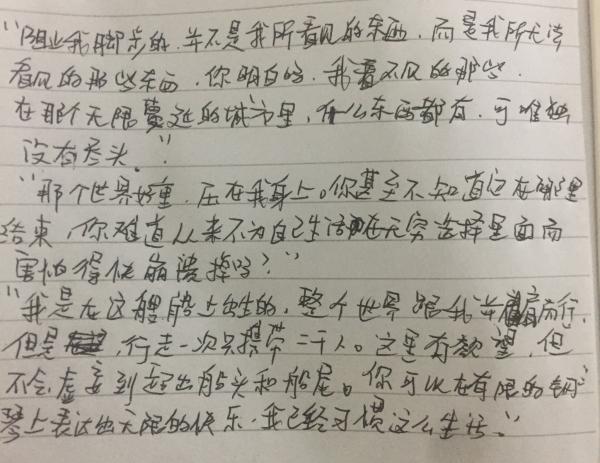 “阻止我脚步的，并不是我所看见的东西，而是我所无法
看见的那些东西，你明白吗，我看不见的那些．
在那个无限蔓延的城市里，什么东西都有，可唯独
没有尽头．”
“那个世界好重，压在我身上。你甚至不知道它在哪里
结束，你难道从来不为自己生活在无穷选择里面而
害怕得快崩溃掉吗？”
“我是在这艘船上出生的，整个世界跟我并肩而行，
但是，行走一次只携带二千人。这里有欲望，但
不会虚妄到超出船头和船尾。你可以在有限的钢
琴上表达出无限的快乐．我已经习惯这么生活．”